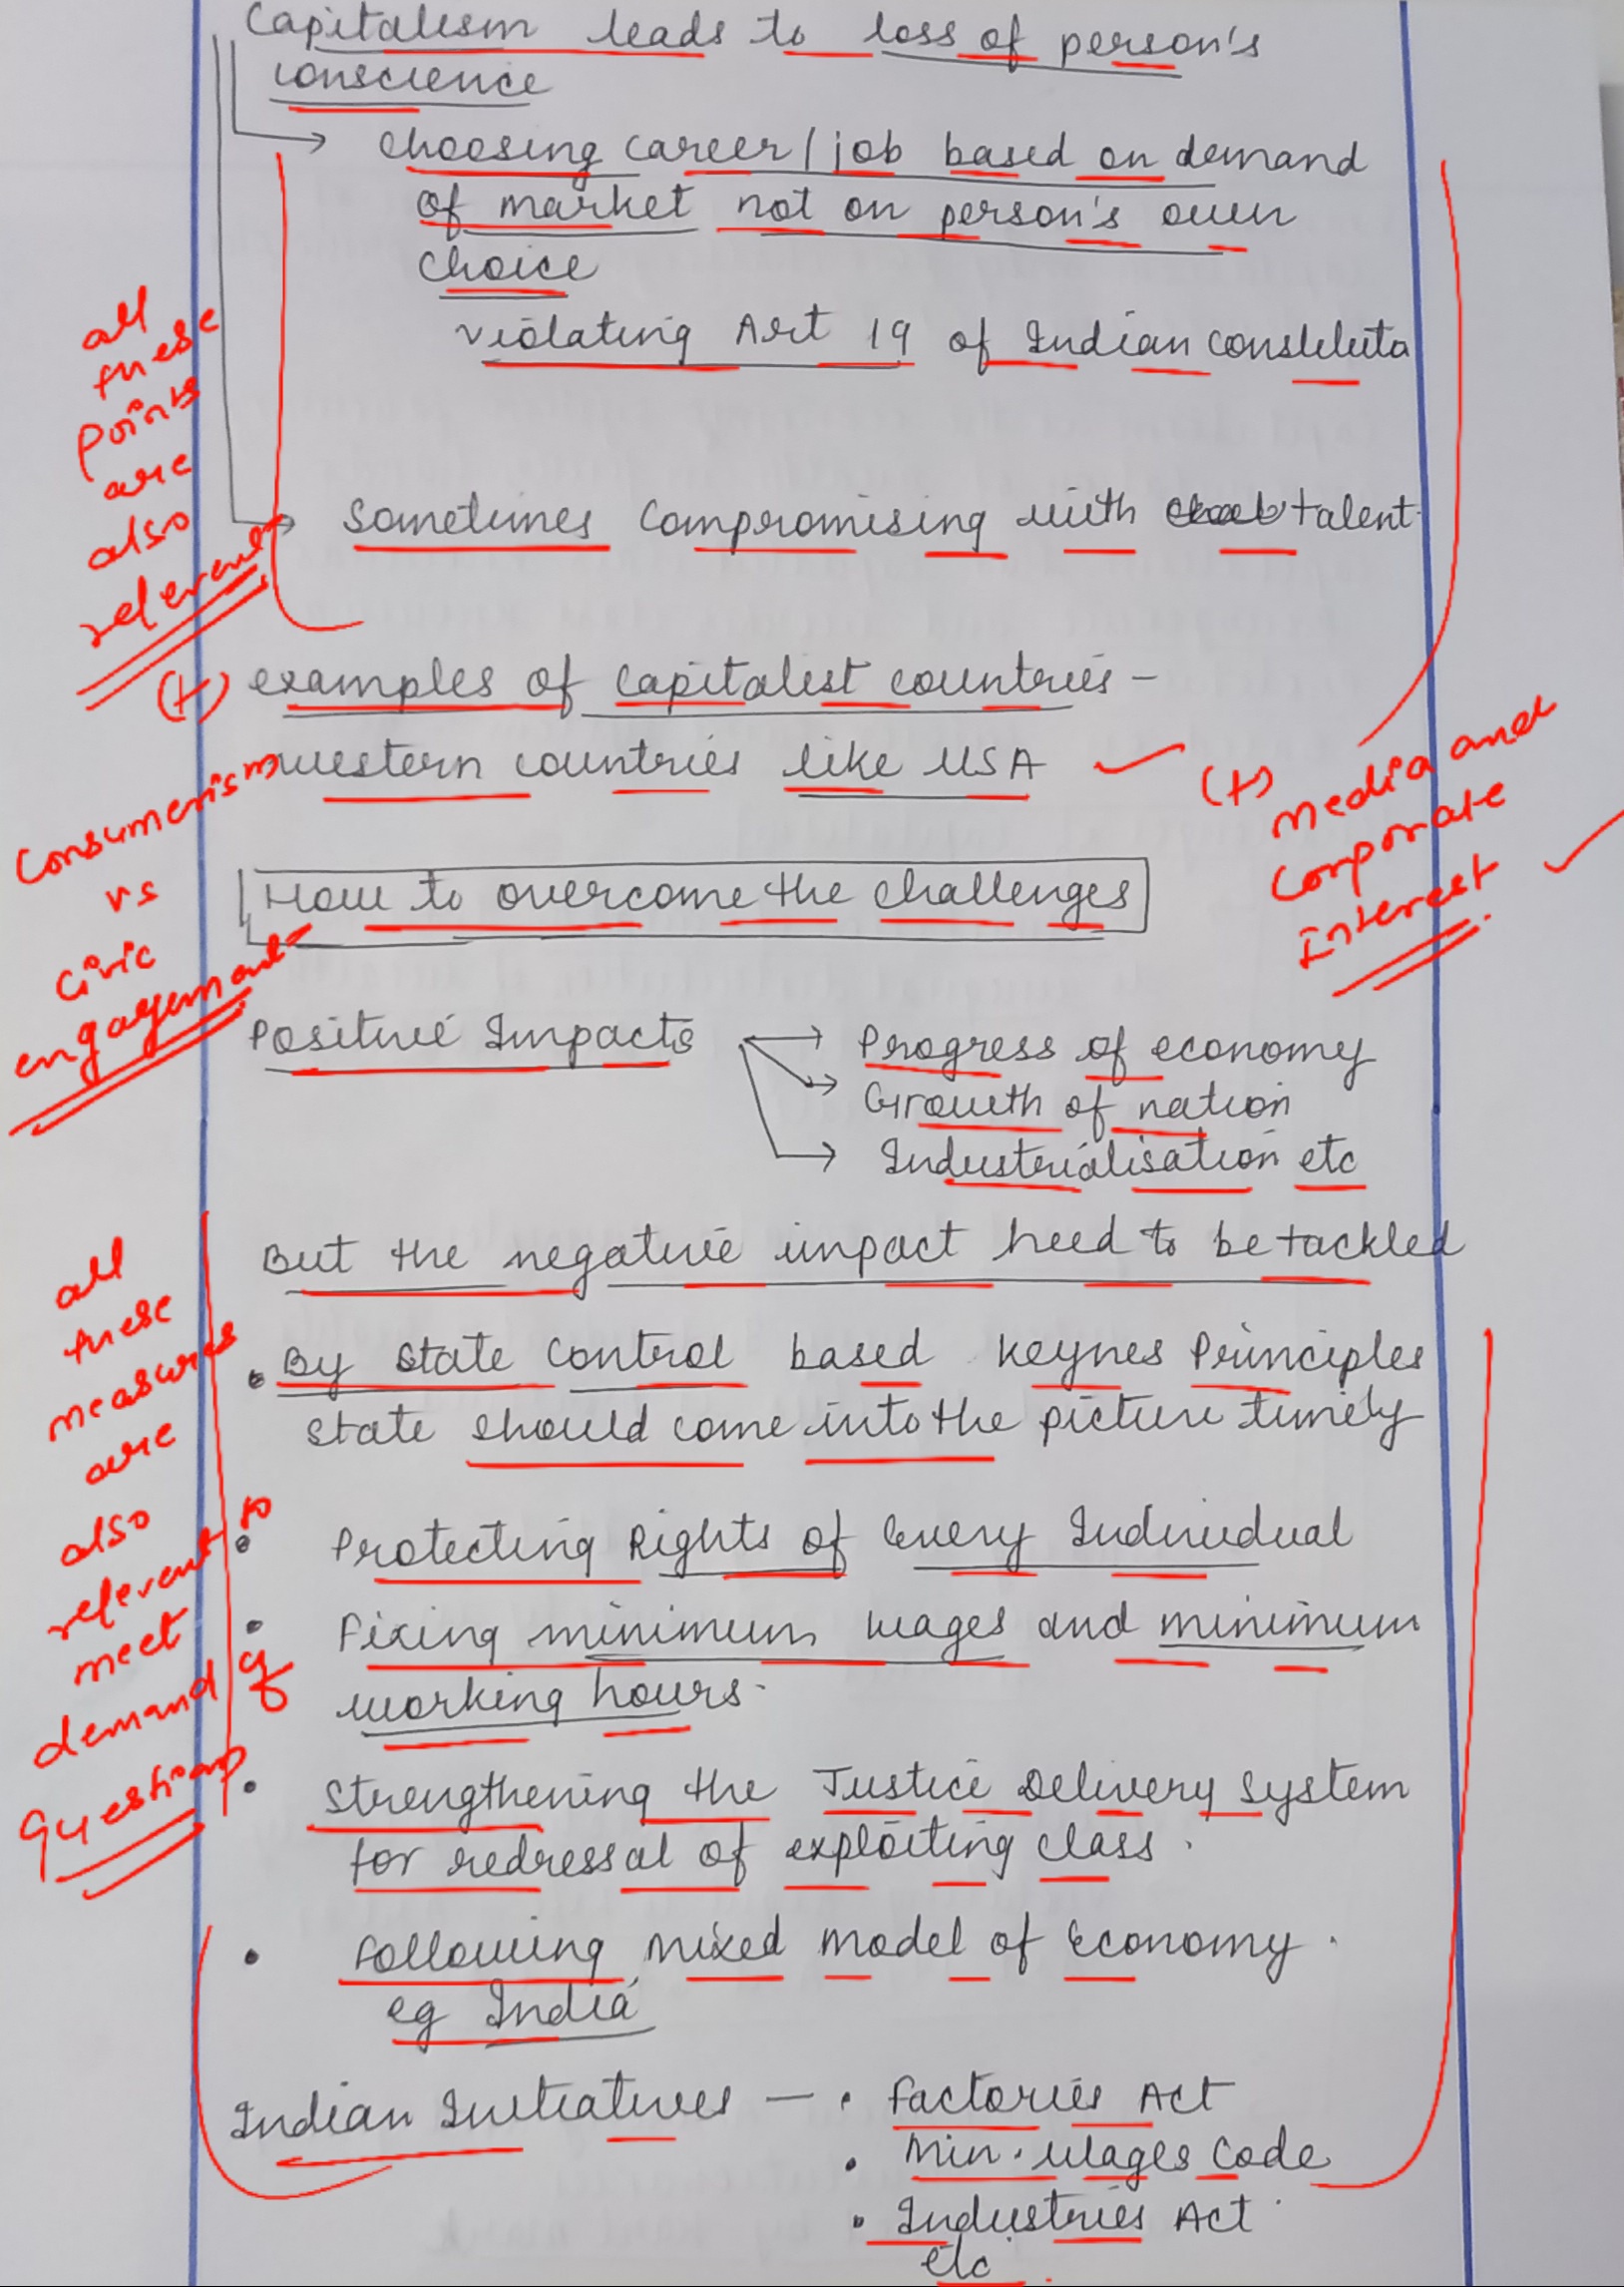 Capitalism leads to loss of person's
conscience
choosing career / job based on demand
of market not on person's own
choice
violating Art 19 of Indian constituta
all
these
points
are
also
relevant
Sometimes compromising with talent
(+) examples of capitalist countries -
western countries like USA
(+)
Media and
Corporate
Interest
Consumerism
vs
civic
engagement
How to overcome the challenges
Positive Impacts
Progress of economy
Growth of nation
Industrialisation etc
But the negative impact need to be tackled
all
these
measures
are
also
relevant to
meet
demand of
question
By state control based keynes Principles
state should come into the picture timely
Protecting Rights of Every Individual
Fixing minimum wages and minimum
working hours.
Strengthening the Justice Delivery system
for redressal of exploiting class.
Following mixed model of Economy.
eg India
Indian Initiatives - • Factories Act
• Min. Wages Code
• Industries Act
etc